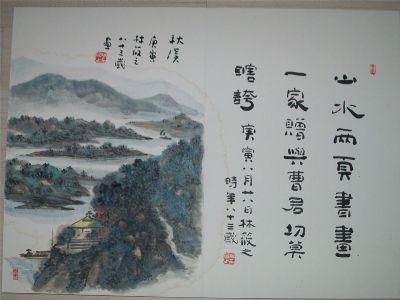 山水两页書畫
一家贈與曹君切莫
瞎誇 庚寅八月廿八日林筱之
時年八十三歲
秋溪
庚寅
林筱之
八十三歲
畫